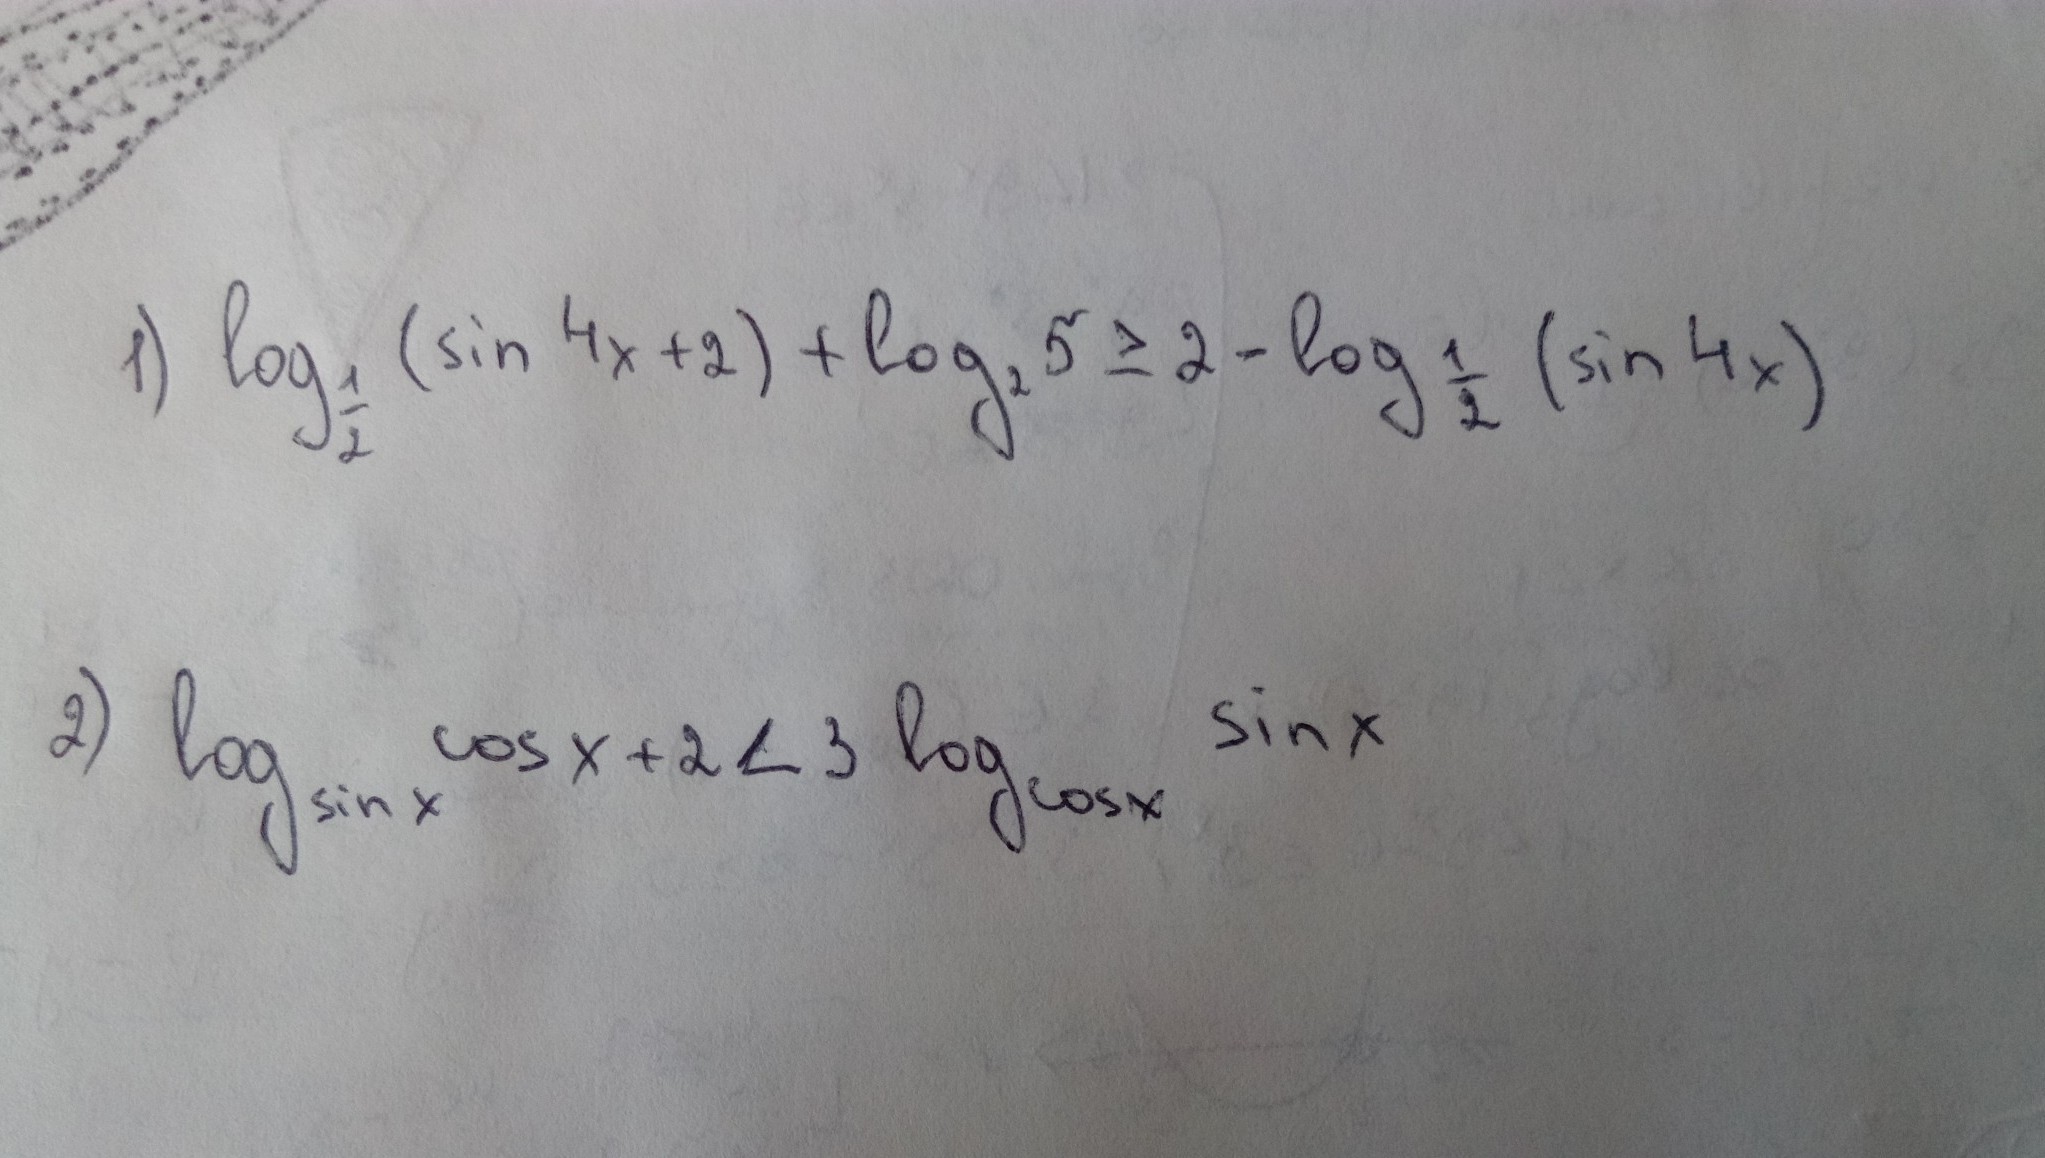 1) log_{1/2} (sin 4x + 2) + log_2 5 ≥ 2 - log_{1/2} (sin 4x)
2) log_{sin x} cos x + 2 < 3 log_{cos x} sin x